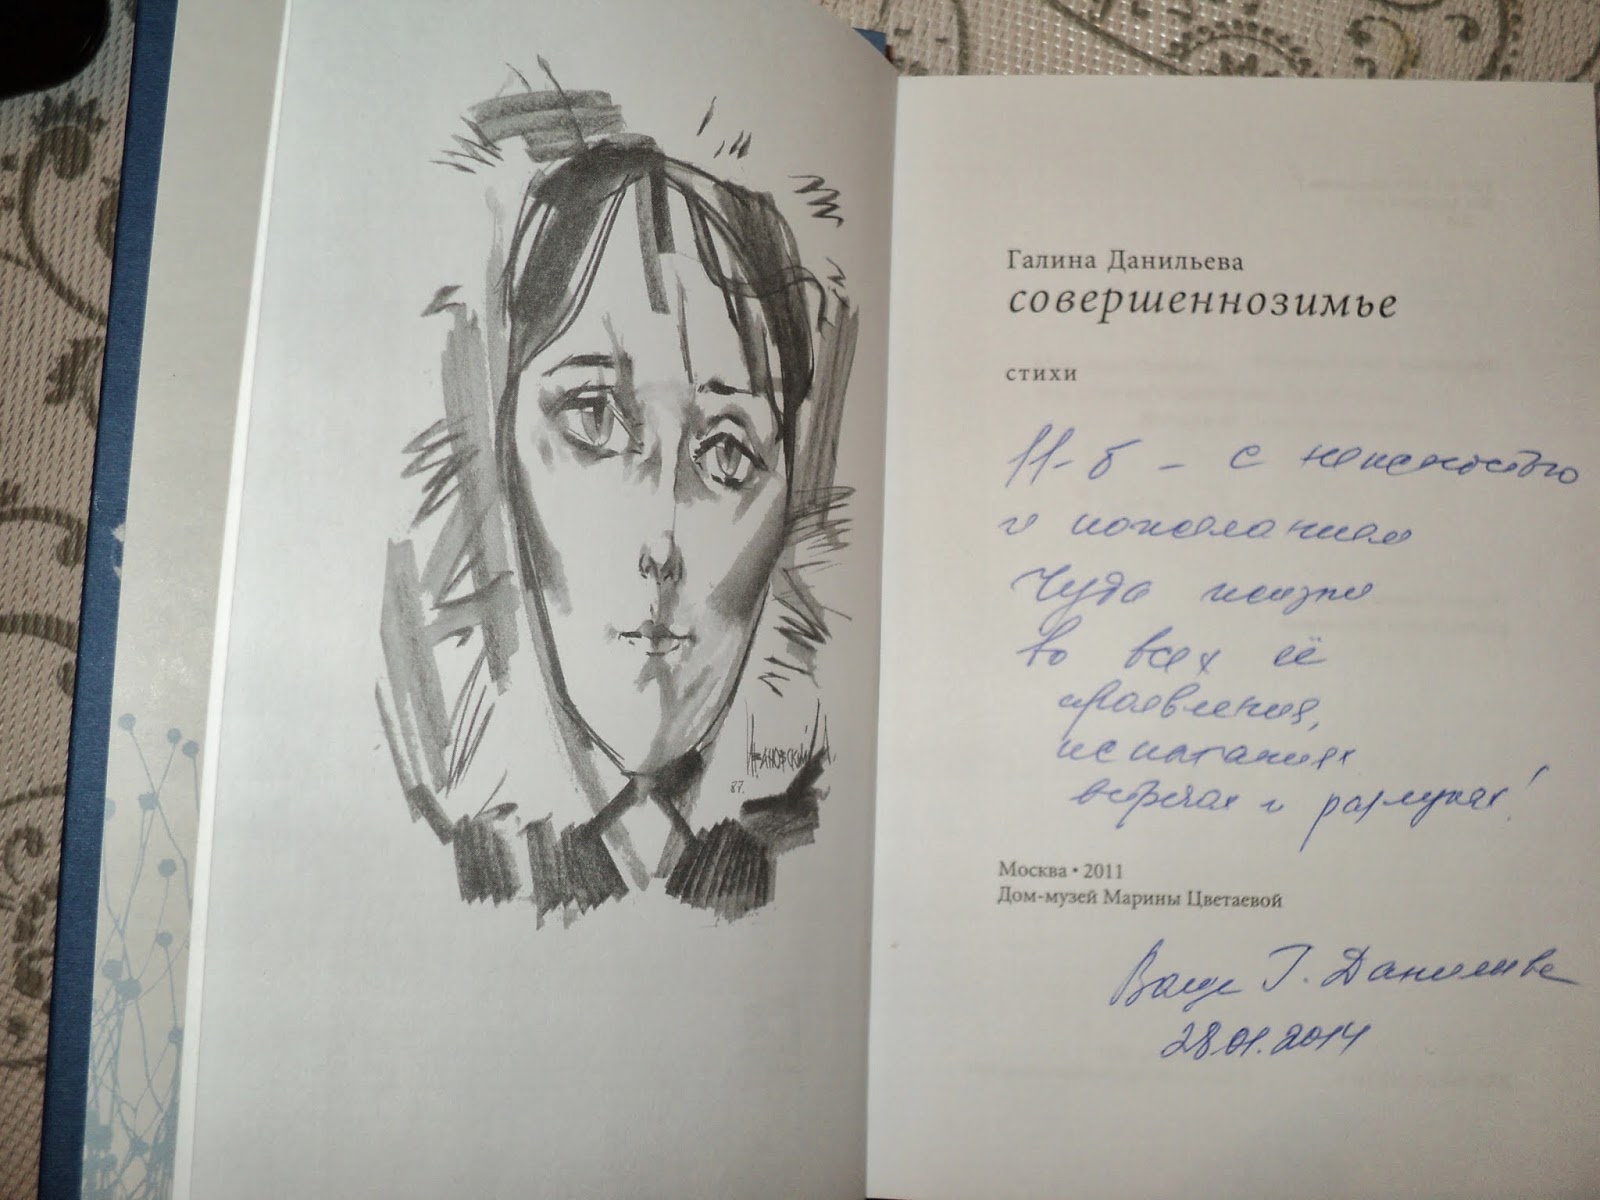 Ивановский А.
87.
Галина Данильева
совершеннозимье
стихи
11-б – с нежностью
и пожеланием
Чуда жизни
во всех её
проявлениях,
испытаниях
встречах и разлуках!
Москва • 2011
Дом-музей Марины Цветаевой
Ваша Г. Данильева
28.01.2014